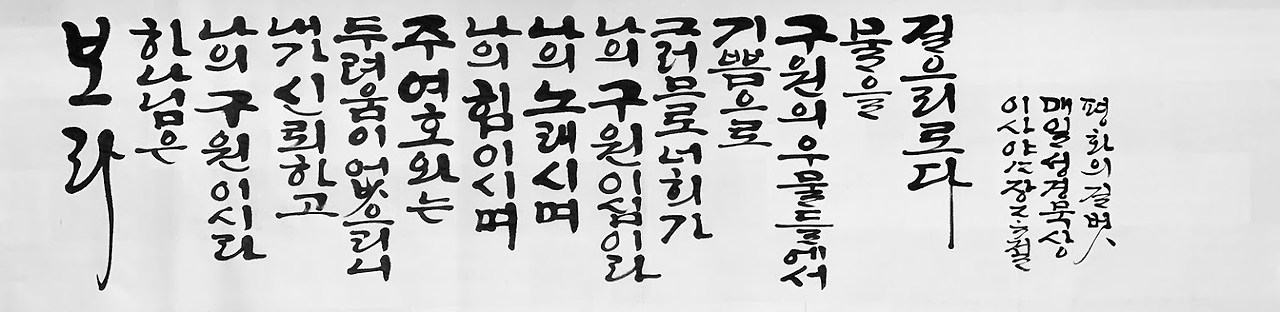 보라
하나님은
나의 구원이시라
내가 신뢰하고
두려움이 없으리니
주 여호와는
나의 힘이시며
나의 노래시며
나의 구원이심이라
그러므로 너희가
기쁨으로
구원의 우물들에서
물을
길으리로다
이사야
매일성경묵상
평화의길벗